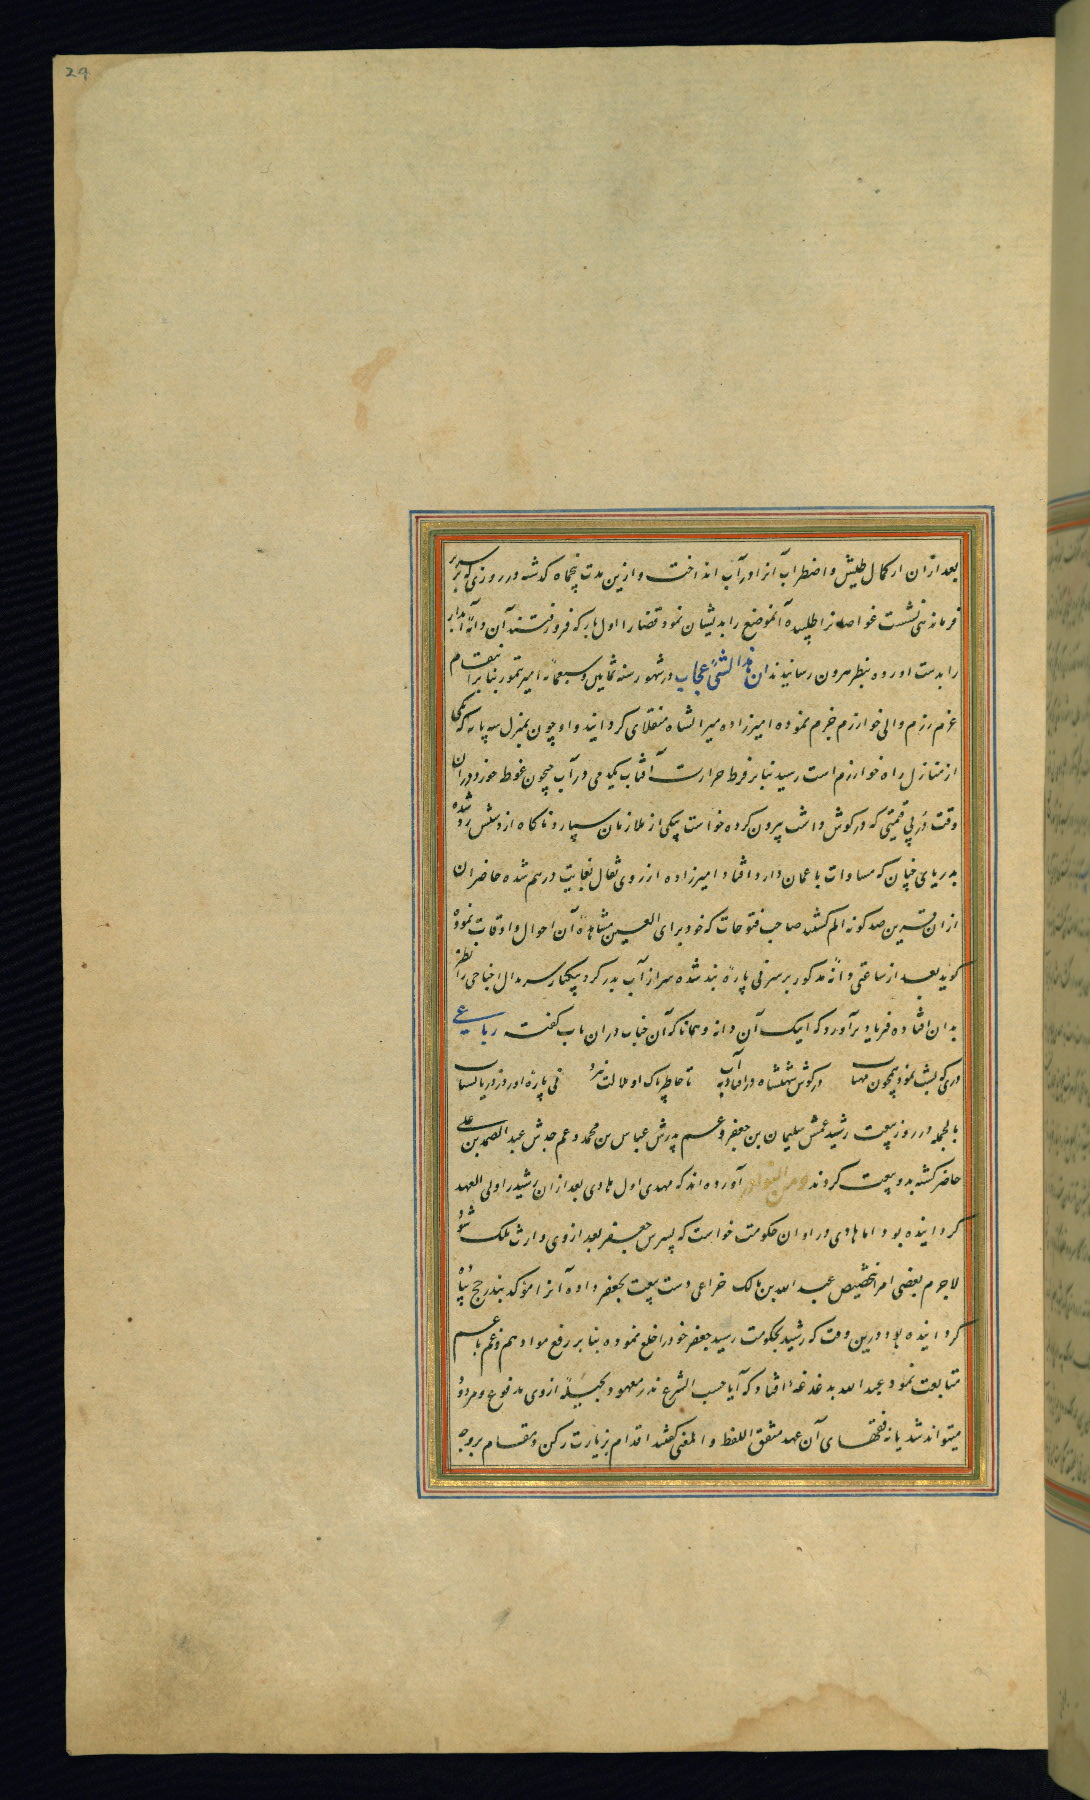 24
بعد ازان از کمال طیش و اضطراب آنرا در آب انداخت و ازین مدت پنجماه گذشته در روزی که بر سریر
فرماندهی نشست غواصانرا طلبیده آنموضع را بدیشان نمود قضا را اول بار که فرو رفتند آن دانه آبدار
را بدست آورده بنظر هرون رسانیدند ان هذا لشئ عجاب در شهور سنه ثمانین و سبعمائه امیر تیمور بنا بر انتقام
عزم رزم والی خوارزم جزم نموده امیرزاده میرانشاه منقلای گردانید و او چون بمنزل سه پایه که یکی
از منازل راه خوارزم است رسید بنا بر فرط حرارت آفتاب یکدمی در آب جیحون غوطه خورد و دران
وقت در پی قیمتی که در گوش داشت بیرون کرده خواست بیکی از ملازمان سپارد ناگاه از دستش رد شده
بدریای چنان که مساوات با عمان دارد افتاد امیرزاده از روی تفال بغایت درهم شده حاضران
ازان قرین صد گونه الم گشتند صاحب فتوحات که خود برای العین مشاهده آن احوال و اوقات نموده
گوید بعد از ساعتی دانه مذکور بر سر نی پاره بند شده سر از آب بدر کرد یکبار سر مدال اختاجی را نظر
بدان افتاده فریاد برآورد که اینک آن دانه و همانا که آن جناب دران باب گفت رباعی
دری که بشب نمود همچون مهتاب در گوش شهنشاه در افتاد به آب تا خاطر پاک او ملالت نبرد نی پاره آورد ز دریا بشتاب
بالجمله در روز بیعت رشید عمش سلیمان بن جعفر و عم پدرش عباس بن محمد و عم جدش عبد الصمد بن علی
حاضر گشته بدو بیعت کردند ومن النوادر آورده اند که مهدی اول هادی بعد ازان رشید را ولی العهد
گردانیده بود اما هادی در اوان حکومت خواست که پسرش جعفر بعد از وی وارث ملک شود
لاجرم بعضی امرا بتخصیص عبد الله بن مالک خزاعی دست بیعت بجعفر داده آنرا مؤکد بنذر حج پیاده
گردانیده بود درین وقت که رشید بحکومت رسید جعفر خود را خلع نموده بنا بر رفع مواد هم و غم با عم
متابعت نمود عبد الله بدغدغه افتاد که آیا حسب الشرع نذر معهود بحیله از وی مدفوع و مردود
میتواند شد یا نه فقهای آن عهد متفق اللفظ و المعنی گفتند اقدام بزیارت رکن و مقام بر وجه